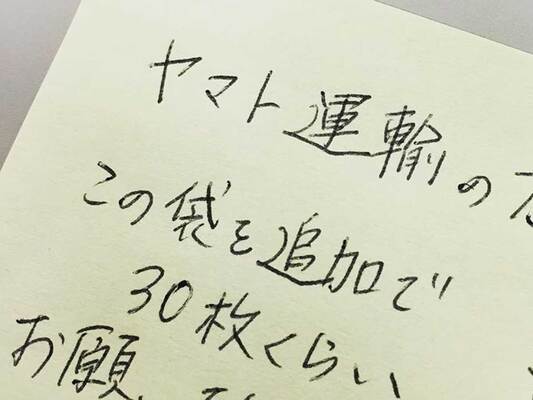 ヤマト運輸の
この袋を追加で
30枚くらい
お願